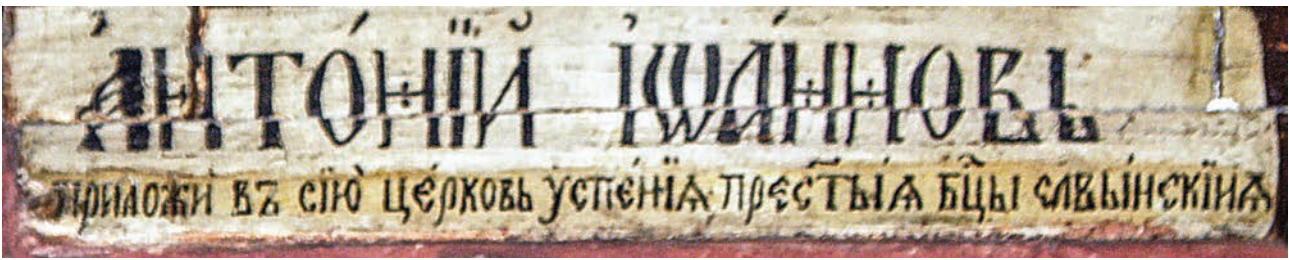 А҆НТО́НЇЙ І҆ѠА́ННОВЬ
ПРИЛОЖИ́ ВЪ СІЮ̀ ЦЕ́РКОВЬ ᲂУ҆СПЕ́НЇѦ ПРЕСТ҃ЫѦ БЦ҃Ы СЛВЫ́НСКЇИѦ